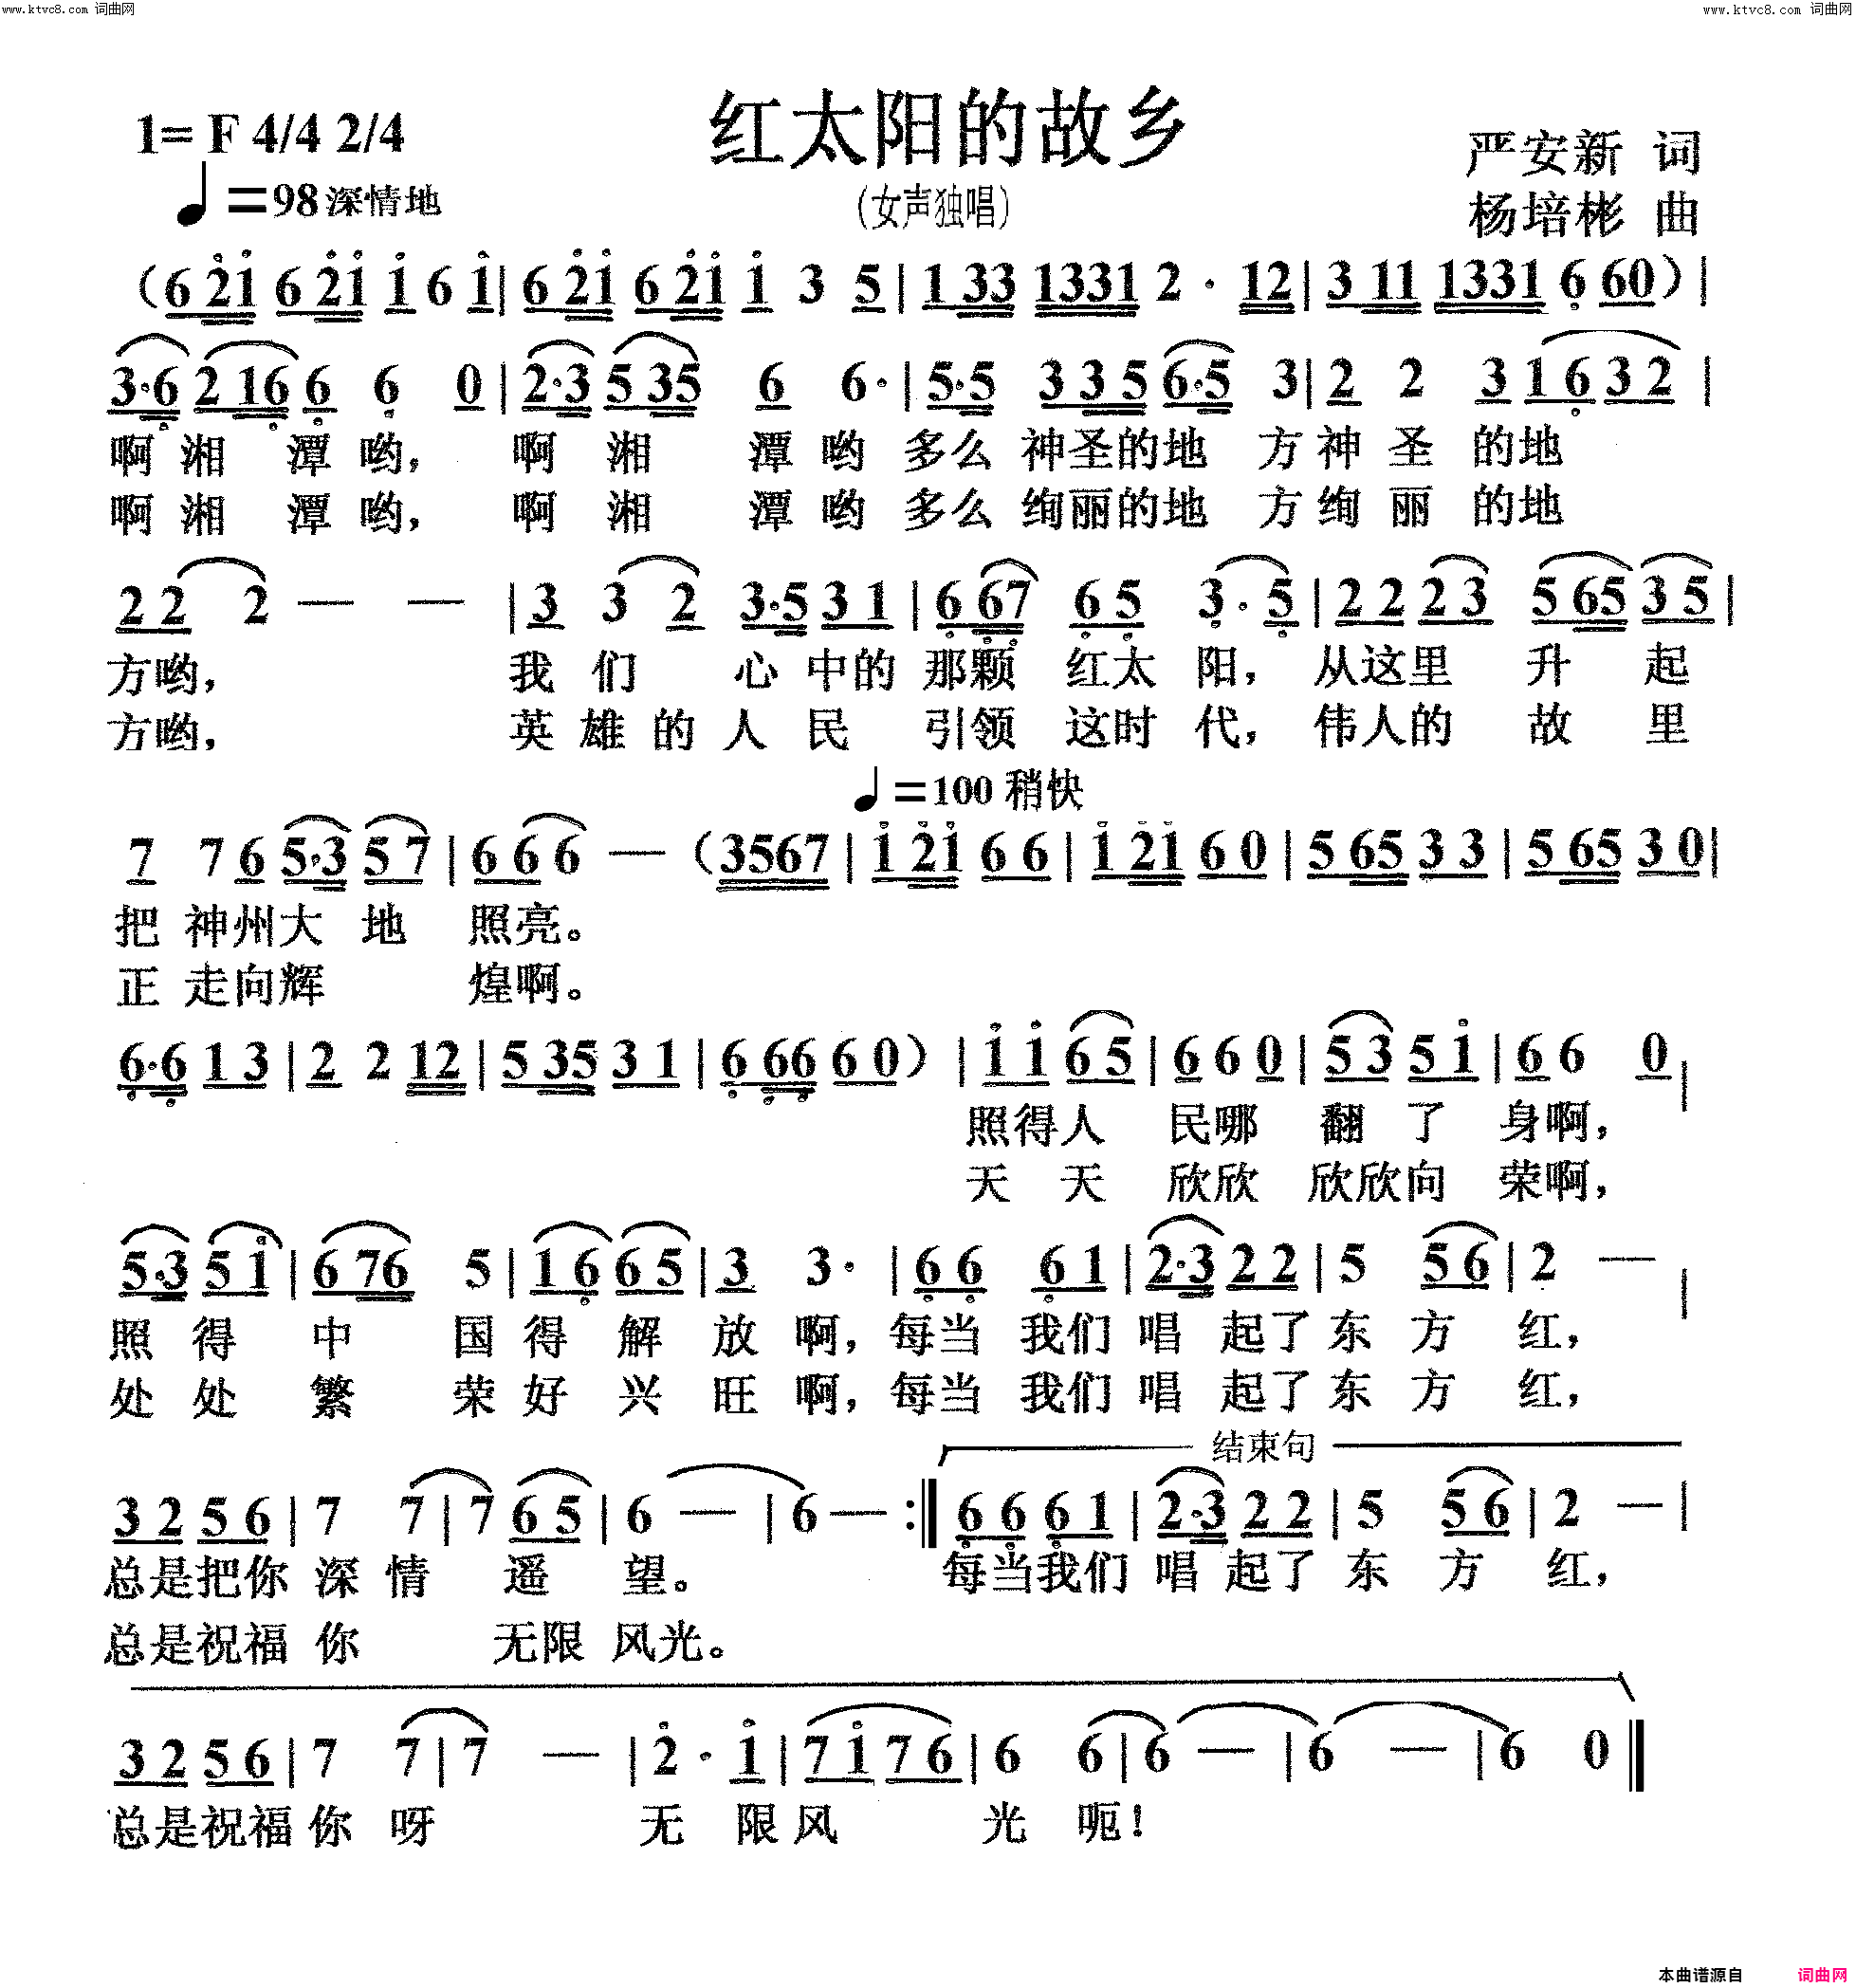 www.ktvc8.com 词曲网
www.ktvc8.com 词曲网
红太阳的故乡
1= F 4/4 2/4
♩=98 深情地
（女声独唱）
严安新 词
杨培彬 曲
（6 2̇1̇ 6 2̇1̇ 1̇ 6 1̇ | 6 2̇1̇ 6 2̇1̇ 1̇ 3 5 | 1 33 1331 2 · 12 | 3 11 1331 6̣ 60）|
3·6̣ 2 16̣ 6̣ 6̣ 0 | 2·3 5 35 6 6· | 5·5 3 3 5 6·5 3 | 2 2 3 1 6̣ 3 2 |
啊 湘 潭 哟， 啊 湘 潭 哟 多么 神圣的地 方 神 圣 的地
啊 湘 潭 哟， 啊 湘 潭 哟 多么 绚丽的地 方 绚 丽 的地
2 2 2 — — | 3 3 2 3·5 3 1 | 6̣ 6̣7̣ 6̣ 5̣ 3̣· 5̣ | 2 2 2 3 5 65 3 5 |
方哟， 我 们 心 中的 那颗 红太 阳， 从这里 升 起
方哟， 英 雄 的 人 民 引领 这时 代， 伟人的 故 里
♩=100 稍快
7 7 6 5·3 5 7 | 6 6 6 — （3567 | 1̇ 2̇1̇ 6 6 | 1̇ 2̇1̇ 6 0 | 5 65 3 3 | 5 65 3 0 |
把 神州大 地 照亮。
正 走向辉 煌啊。
6̣·6̣ 1 3 | 2 2 12 | 5 35 3 1 | 6̣ 6̣6̣ 6 0） | 1̇ 1̇ 6 5 | 6 6 0 | 5 3 5 1̇ | 6 6 0 |
照得人 民哪 翻 了 身啊，
天 天 欣欣 欣欣向 荣啊，
5·3 5 1̇ | 6 76 5 | 1 6̣ 6 5 | 3 3· | 6̣ 6̣ 6̣ 1 | 2·3 2 2 | 5 5 6 | 2 — |
照 得 中 国 得 解 放 啊， 每当 我们 唱 起了 东 方 红，
处 处 繁 荣 好 兴 旺 啊， 每当 我们 唱 起了 东 方 红，
结束句
3 2 5 6 | 7 7 | 7 6 5 | 6 — | 6 — :‖ 6̣ 6̣ 6̣ 1 | 2·3 2 2 | 5 5 6 | 2 — |
总是把你 深 情 遥 望。 每当我们 唱 起了 东 方 红，
总是祝福 你 无限 风光。
3 2 5 6 | 7 7 | 7 — | 2̇ · 1̇ | 7 1̇ 7 6 | 6 6 | 6 — | 6 — | 6 0 ‖
总是祝福 你 呀 无 限 风 光 呃！
本曲谱源自 词曲网